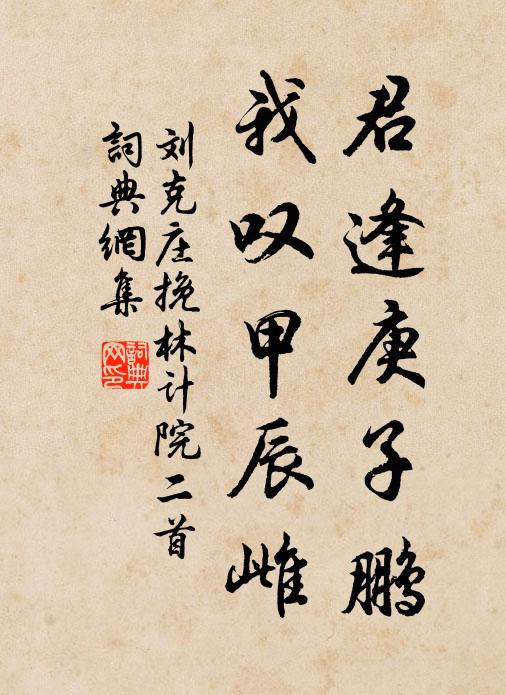 君逢庚子鹏
我叹甲辰雌
刘克庄挽林计院二首
詞典網集
詞典網印